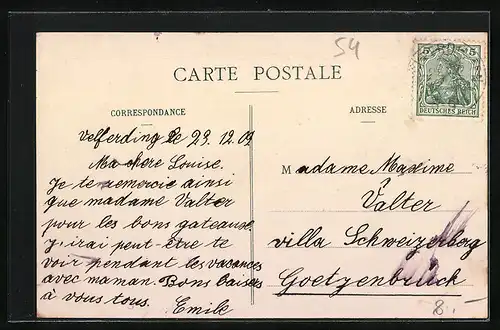 54
CARTE POSTALE
CORRESPONDANCE
ADRESSE
5 5
DEUTSCHES REICH
Velferding le 23.12.09
Ma chere Louise.
Je te remercie ainsi
que madame Valter
pour les bons gateaux.
J'irai peut-être te
voir pendant les vacances
avec maman. Bons baisers
à vous tous.
Emile
Madame Maxime
Valter
villa Schweizerberg
Goetzenbrück
8.-